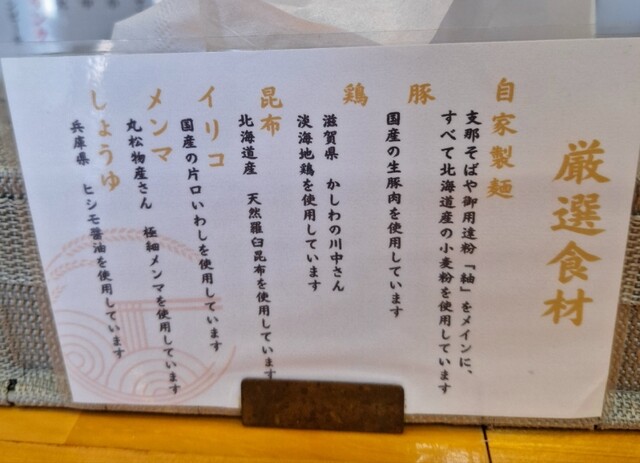 厳選食材
自家製麺
支那そばや御用達粉「紬」をメインに、
すべて北海道産の小麦粉を使用しています
豚
国産の生豚肉を使用しています
鶏
滋賀県 かしわの川中さん
淡海地鶏を使用しています
昆布
北海道産 天然羅臼昆布を使用しています
イリコ
国産の片口いわしを使用しています
メンマ
丸松物産さん 極細メンマを使用しています
しょうゆ
兵庫県 ヒシモ醤油を使用しています